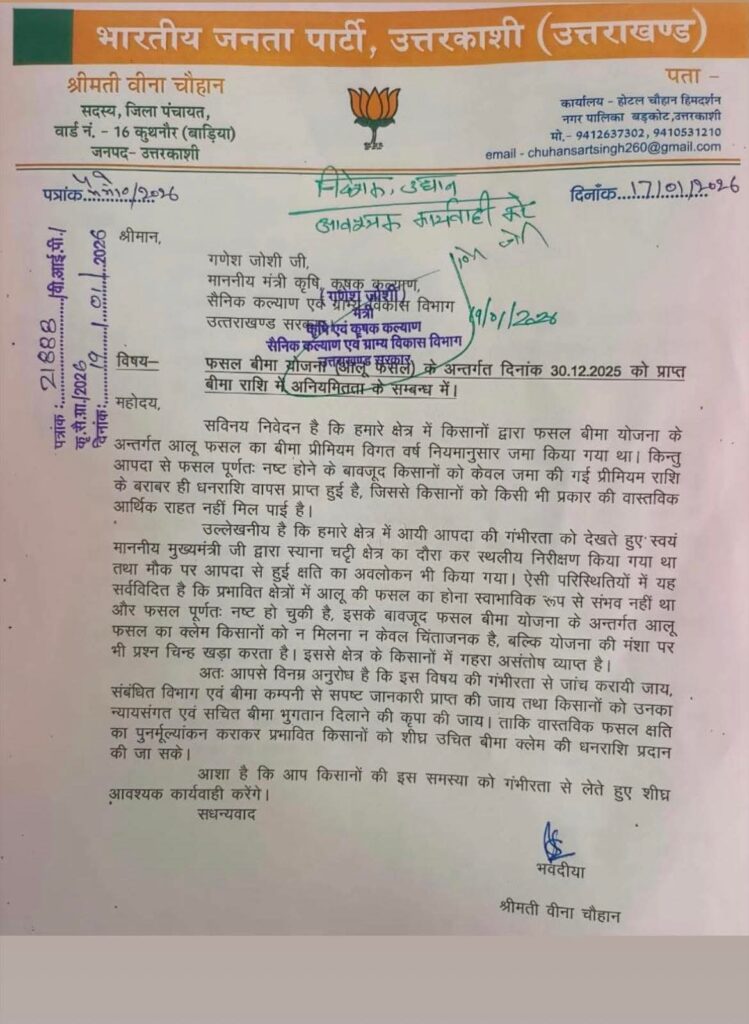 भारतीय जनता पार्टी, उत्तरकाशी (उत्तराखण्ड)
श्रीमती वीना चौहान
सदस्य, जिला पंचायत,
वार्ड नं. - 16 कुथनौर (बाड़िया)
जनपद- उत्तरकाशी
पता -
कार्यालय - होटल चौहान हिमदर्शन
नगर पालिका बड़कोट,उत्तरकाशी
मो.- 9412637302, 9410531210
email - chuhansartsingh260@gmail.com
पत्रांक 10/2026
दिनांक 17/01/2026
निदेशक, उद्यान
आवश्यक कार्यवाही करें
19/01/2026
पत्रांक : 21888 /वी.आई.पी./
कृ.सै.ग्रा./2026
दिनांक: 19 / 01 / 2026
श्रीमान,
गणेश जोशी जी,
माननीय मंत्री कृषि, कृषक कल्याण,
सैनिक कल्याण एवं ग्राम्य विकास विभाग
उत्तराखण्ड सरकार
(गणेश जोशी)
मंत्री
कृषि एवं कृषक कल्याण
सैनिक कल्याण एवं ग्राम्य विकास विभाग
उत्तराखण्ड सरकार
विषय– फसल बीमा योजना (आलू फसल) के अन्तर्गत दिनांक 30.12.2025 को प्राप्त
बीमा राशि में अनियमितता के सम्बन्ध में।
महोदय,
सविनय निवेदन है कि हमारे क्षेत्र में किसानों द्वारा फसल बीमा योजना के
अन्तर्गत आलू फसल का बीमा प्रीमियम विगत वर्ष नियमानुसार जमा किया गया था। किन्तु
आपदा से फसल पूर्णतः नष्ट होने के बावजूद किसानों को केवल जमा की गई प्रीमियम राशि
के बराबर ही धनराशि वापस प्राप्त हुई है, जिससे किसानों को किसी भी प्रकार की वास्तविक
आर्थिक राहत नहीं मिल पाई है।
उल्लेखनीय है कि हमारे क्षेत्र में आयी आपदा की गंभीरता को देखते हुए स्वयं
माननीय मुख्यमंत्री जी द्वारा स्याना चट्टी क्षेत्र का दौरा कर स्थलीय निरीक्षण किया गया था
तथा मौक पर आपदा से हुई क्षति का अवलोकन भी किया गया। ऐसी परिस्थितियों में यह
सर्वविदित है कि प्रभावित क्षेत्रों में आलू की फसल का होना स्वाभाविक रूप से संभव नहीं था
और फसल पूर्णतः नष्ट हो चुकी है, इसके बावजूद फसल बीमा योजना के अन्तर्गत आलू
फसल का क्लेम किसानों को न मिलना न केवल चिंताजनक है, बल्कि योजना की मंशा पर
भी प्रश्न चिन्ह खड़ा करता है। इससे क्षेत्र के किसानों में गहरा असंतोष व्याप्त है।
अतः आपसे विनम्र अनुरोध है कि इस विषय की गंभीरता से जांच करायी जाय,
संबंधित विभाग एवं बीमा कम्पनी से सपष्ट जानकारी प्राप्त की जाय तथा किसानों को उनका
न्यायसंगत एवं सचित बीमा भुगतान दिलाने की कृपा की जाय। ताकि वास्तविक फसल क्षति
का पुनर्मूल्यांकन कराकर प्रभावित किसानों को शीघ्र उचित बीमा क्लेम की धनराशि प्रदान
की जा सके।
आशा है कि आप किसानों की इस समस्या को गंभीरता से लेते हुए शीघ्र
आवश्यक कार्यवाही करेंगे।
सधन्यवाद
भवदीया
श्रीमती वीना चौहान